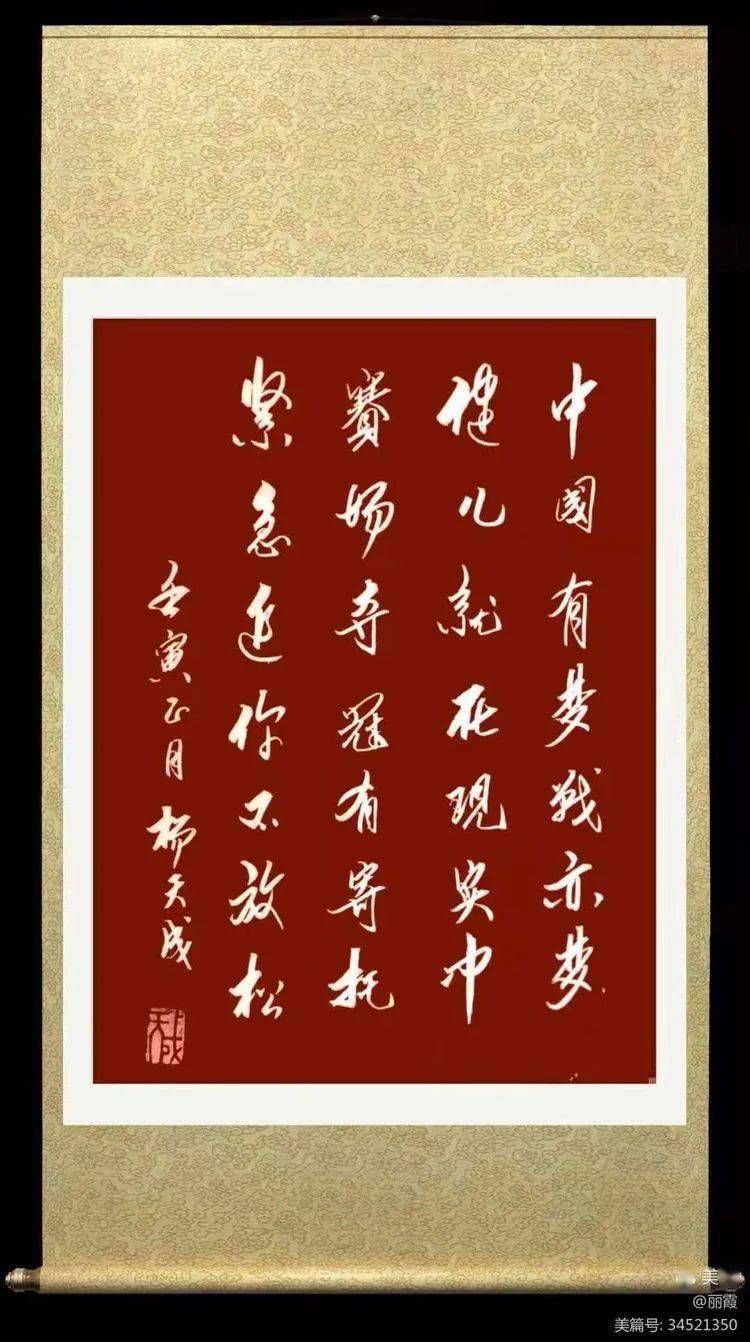 中国有梦战亦梦
健儿就在现实中
赛场夺冠有寄托
紧急追你不放松
壬寅正月 柳天成
天成
美
@丽霞
美篇号: 34521350